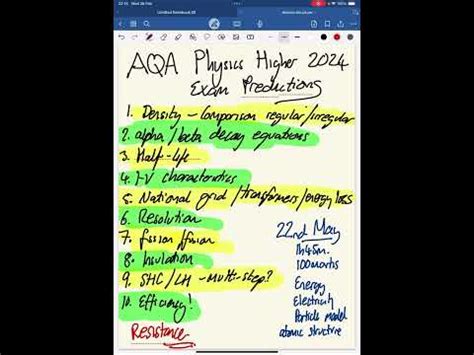 AQA Physics Higher 2024
Exam Predictions
1. Density - Comparison regular/irregular
2. alpha/beta decay equations
3. Half-life
4. I-V characteristics
5. National grid/transformers/energy loss
6. Resolution
7. fission/fusion
8. Insulation
9. SHC/LH - multi-step?
10. Efficiency!
Resistance
22nd May
1h45m.
100marks
Energy
Electricity
Particle model
atomic structure